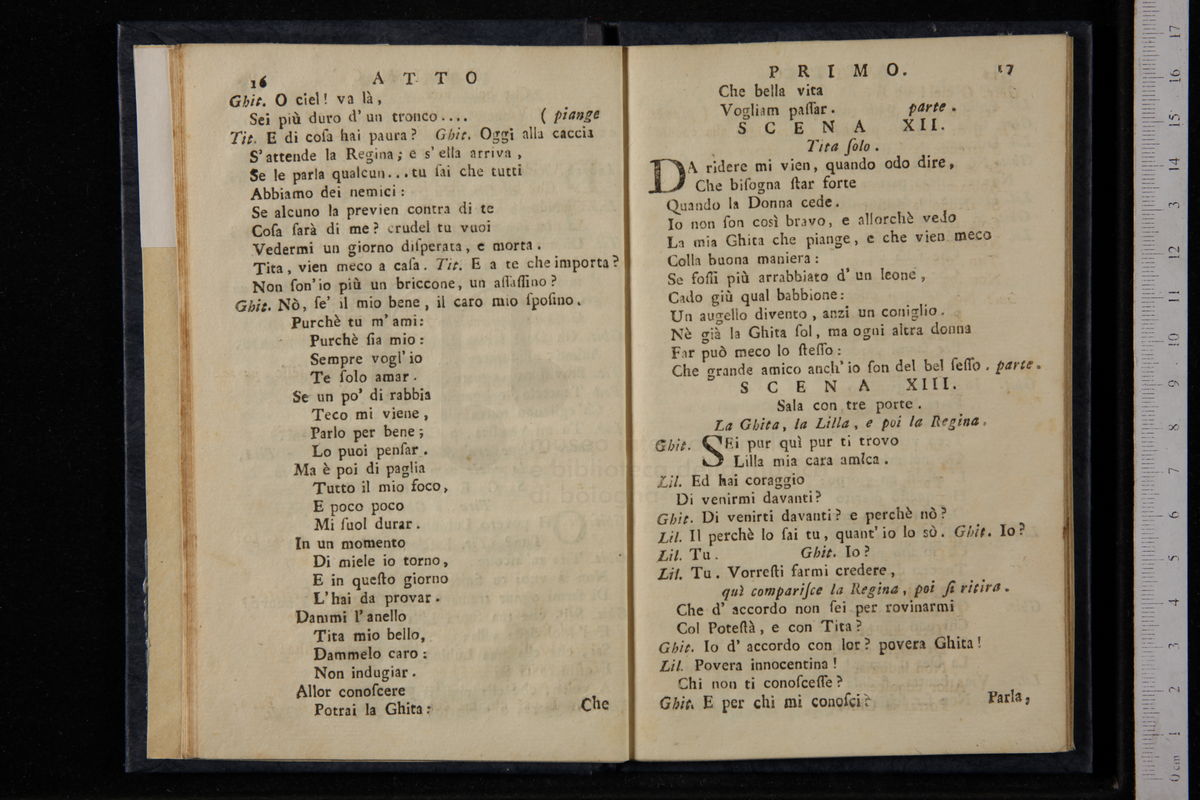 16 ATTO
Ghit. O ciel! va là,
Sei più duro d'un tronco.... ( piange
Tit. E di coſa hai paura? Ghit. Oggi alla caccia
S'attende la Regina; e s'ella arriva,
Se le parla qualcun...tu ſai che tutti
Abbiamo dei nemici:
Se alcuno la previen contra di te
Coſa ſarà di me? crudel tu vuoi
Vedermi un giorno diſperata, e morta.
Tita, vien meco a caſa. Tit. E a te che importa?
Non ſon'io più un briccone, un aſſaſſino?
Ghit. Nò, ſe' il mio bene, il caro mio ſpoſino.
Purchè tu m'ami:
Purchè ſia mio:
Sempre vogl'io
Te ſolo amar.
Se un po' di rabbia
Teco mi viene,
Parlo per bene;
Lo puoi penſar.
Ma è poi di paglia
Tutto il mio foco,
E poco poco
Mi ſuol durar.
In un momento
Di miele io torno,
E in queſto giorno
L'hai da provar.
Dammi l'anello
Tita mio bello,
Dammelo caro:
Non indugiar.
Allor conoſcere
Potrai la Ghita:
Che
PRIMO. 17
Che bella vita
Vogliam paſſar. parte.
SCENA XII.
Tita ſolo.
DA ridere mi vien, quando odo dire,
Che biſogna ſtar forte
Quando la Donna cede.
Io non ſon così bravo, e allorchè vedo
La mia Ghita che piange, e che vien meco
Colla buona maniera:
Se foſſi più arrabbiato d'un leone,
Cado giù qual babbione:
Un augello divento, anzi un coniglio.
Nè già la Ghita ſol, ma ogni altra donna
Far può meco lo ſteſſo:
Che grande amico anch'io ſon del bel ſeſſo. parte.
SCENA XIII.
Sala con tre porte.
La Ghita, la Lilla, e poi la Regina.
Ghit. SEi pur quì pur ti trovo
Lilla mia cara amica.
Lil. Ed hai coraggio
Di venirmi davanti?
Ghit. Di venirti davanti? e perchè nò?
Lil. Il perchè lo ſai tu, quant'io lo sò. Ghit. Io?
Lil. Tu. Ghit. Io?
Lil. Tu. Vorreſti farmi credere,
quì compariſce la Regina, poi ſi ritira.
Che d'accordo non ſei per rovinarmi
Col Poteſtà, e con Tita?
Ghit. Io d'accordo con lor? povera Ghita!
Lil. Povera innocentina!
Chi non ti conoſceſſe?
Ghit. E per chi mi conoſci?
Parla,